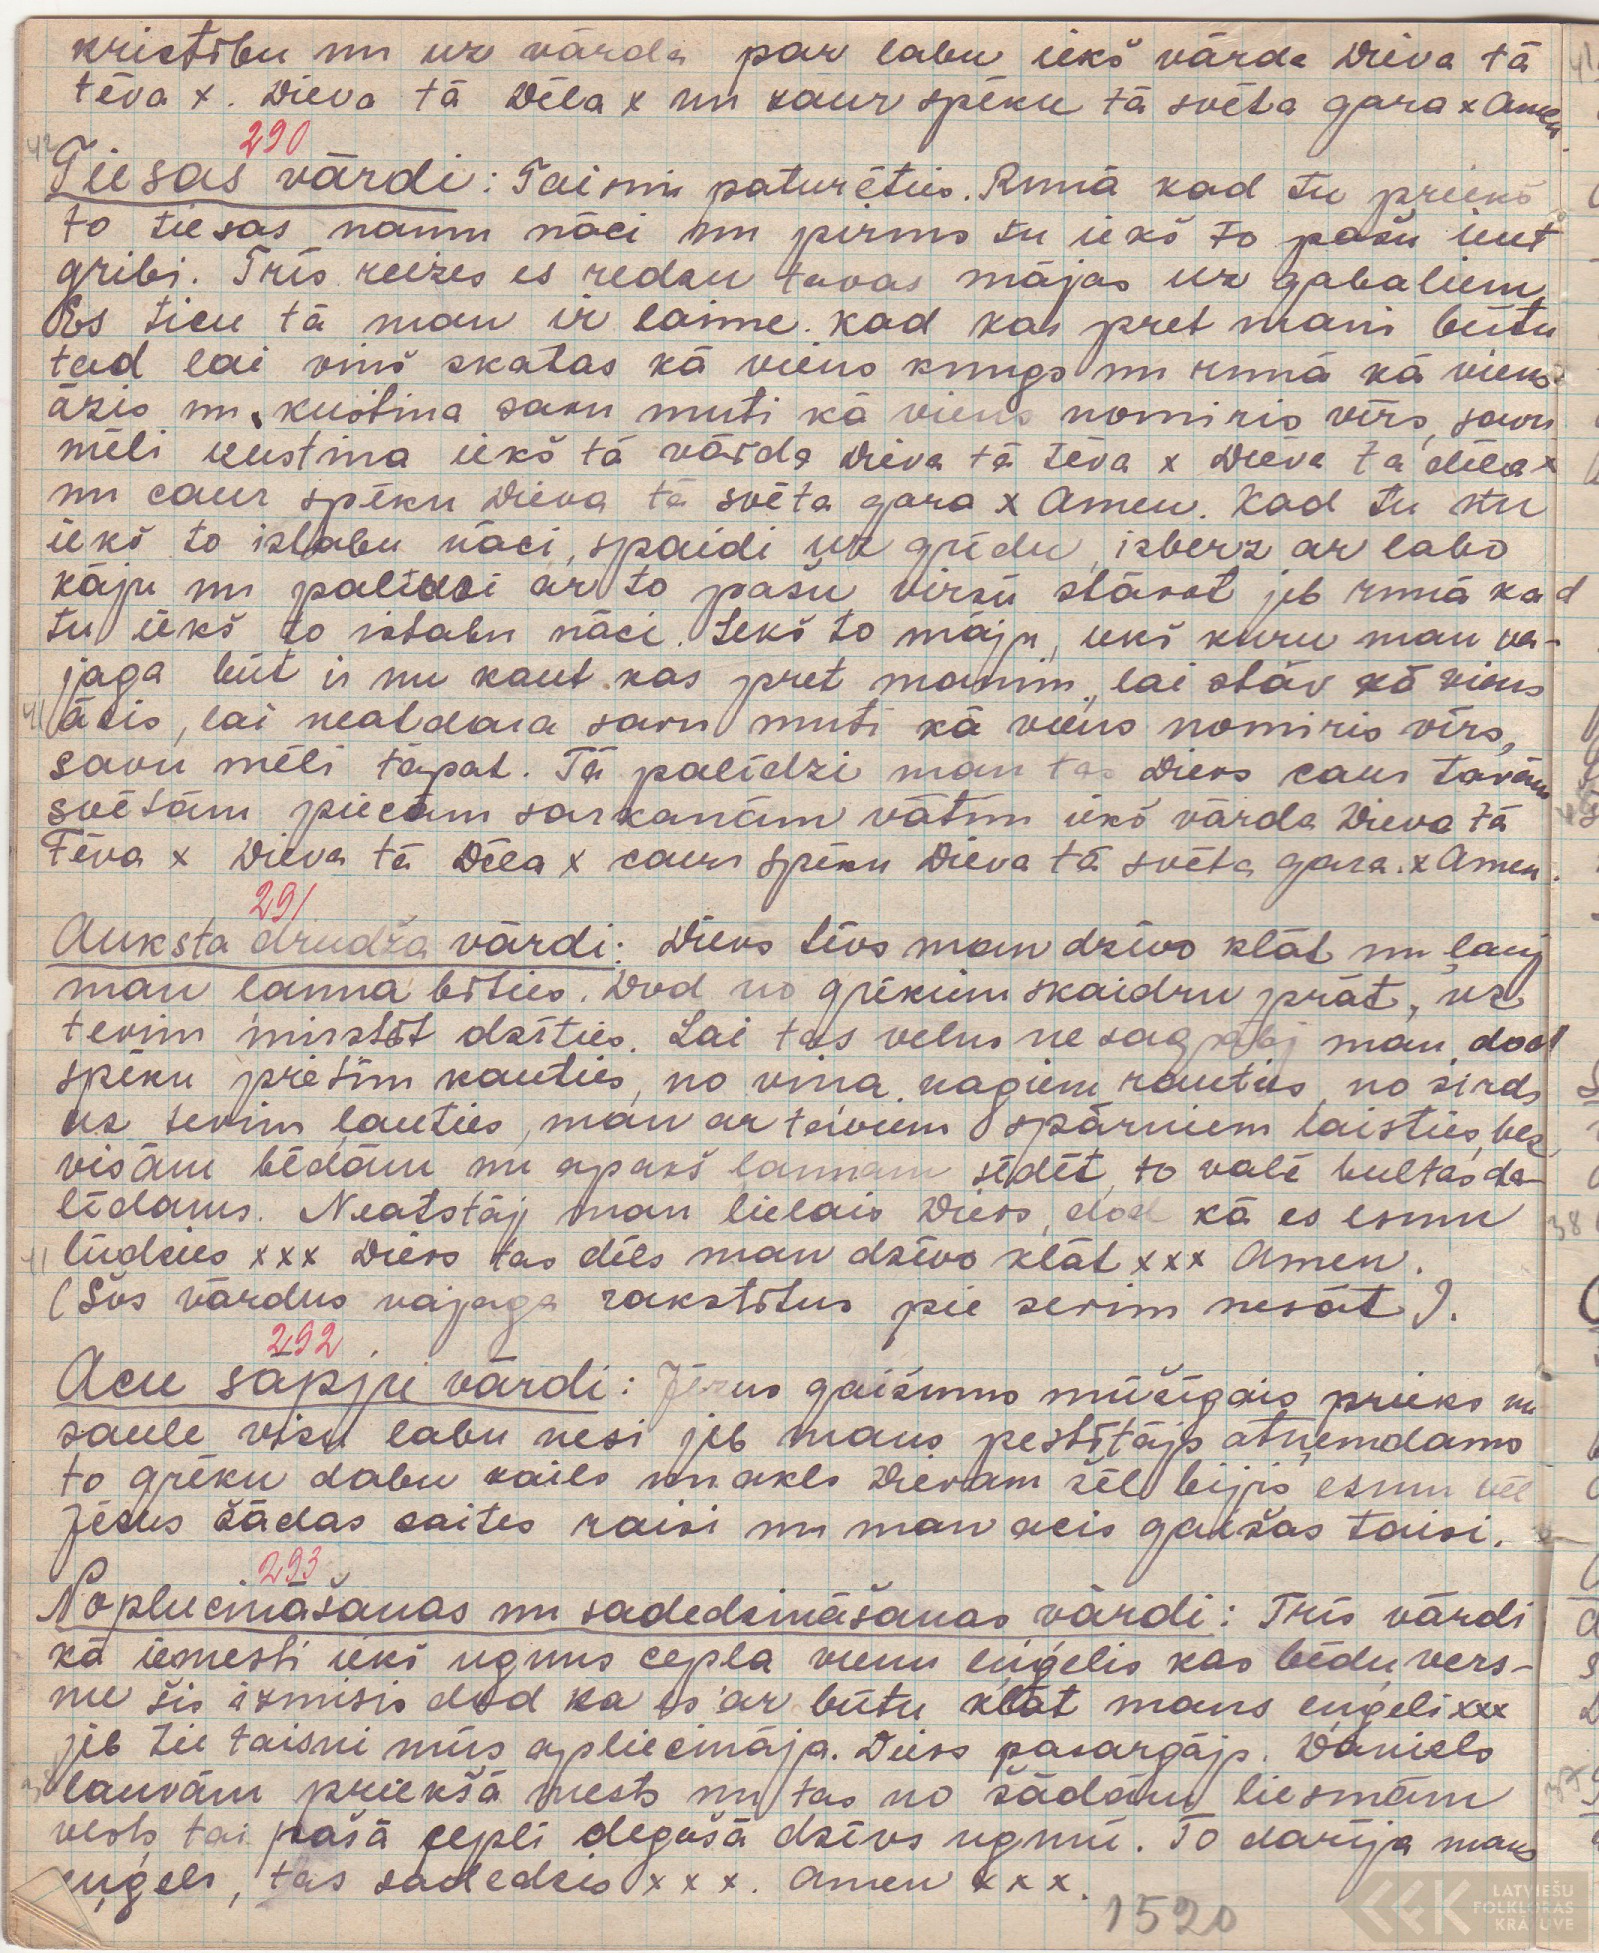 kristību un uz vārda par labu iekš vārda Dieva tā
tēva x. Dieva tā Dēla x un caur spēku tā svēta gara x Amen.
290
Tiesas vārdi: Taisni paturēties. Runā kad tu prieks
to tiesas namu nāci un pirms tu iekš to pašu iet
gribi. Trīs reizes es redzu tavas mājas uz gabaliem
Es ticu tā man ir laime. Kad kas pret mani būtu
tad lai viņš skatas kā viens kungs un runā kā viens
āzis un kustina savu muti kā viens nomiris vīrs, savu
mēli kustina iekš tā vārda Dieva tā tēva x Dieva tā dēla x
un caur spēku Dieva tā svēta gara x Amen. Kad tu nu
iekš to istabu nāci, spaidi uz grīdu, izberz ar labo
kāju un palieci ar to pašu virsū stāvot jeb runā kad
tu iekš to istabu nāci. Iekš to māju, iekš kuru man va-
jaga būt ir nu kaut kas pret manim, lai stāv kā viens
āzis, lai neatdara savu muti kā viens nomiris vīrs,
savu mēli tāpat. Tā palīdzi man tas Dievs caur tavām
svētām piecām sarkanām vātīm iekš vārda Dieva tā
Tēva x Dieva tā Dēla x caur spēku Dieva tā svēta gara x Amen.
291
Auksta drudža vārdi: Dievs tēvs man dzīvo klāt un ļauj
man ļauna bīties. Dod no grēkiem skaidru prāt, uz
tevim mirstot dzīties. Lai tas velns ne sagrābj man, dod
spēku pretim kauties, no viņa nagiem rauties, no sirds
uz tevim ļauties, man ar taviem spārniem laisties, bez
visām bēdām un apakš ļaunam sēdēt, to vali bultas da-
līdams. Neatstāj man lielais Dievs, dod kā es esmu
lūdzies xxx Dievs tas dēls man dzīvo klāt xxx Amen.
(Šos vārdus vajaga rakstītus pie sevim nesāt).
292
Acu sāpju vārdi: Jēzus gaišums mūžīgais prieks un
saule visu labu nesi jeb mans pestītājs atņemdams
to grēku dabu kails un akls Dievam žēl bijis esmu vēl
Jēzus šādas saites raisi un man acis gaišas taisi.
293
Noplucināšanas un sadedzināšanas vārdi: Trīs vārdi
kā iemesti iekš uguns cepļa vienu eņģelis kas bēdu vers-
me šis izmisis dod ka es ar būtu klāt mans eņģeli xxx
jeb tie taisni mūs apliecināja. Dievs pasargājs. Daniels
lauvām priekšā mests un tas no šādām liesmām
vests tai pašā ceplī degošā dzīvs ugunī. To darīja mans
eņģels, tas sadedzis x x x. Amen x x x.
1520
LATVIEŠU
FOLKLORAS
KRĀTUVE